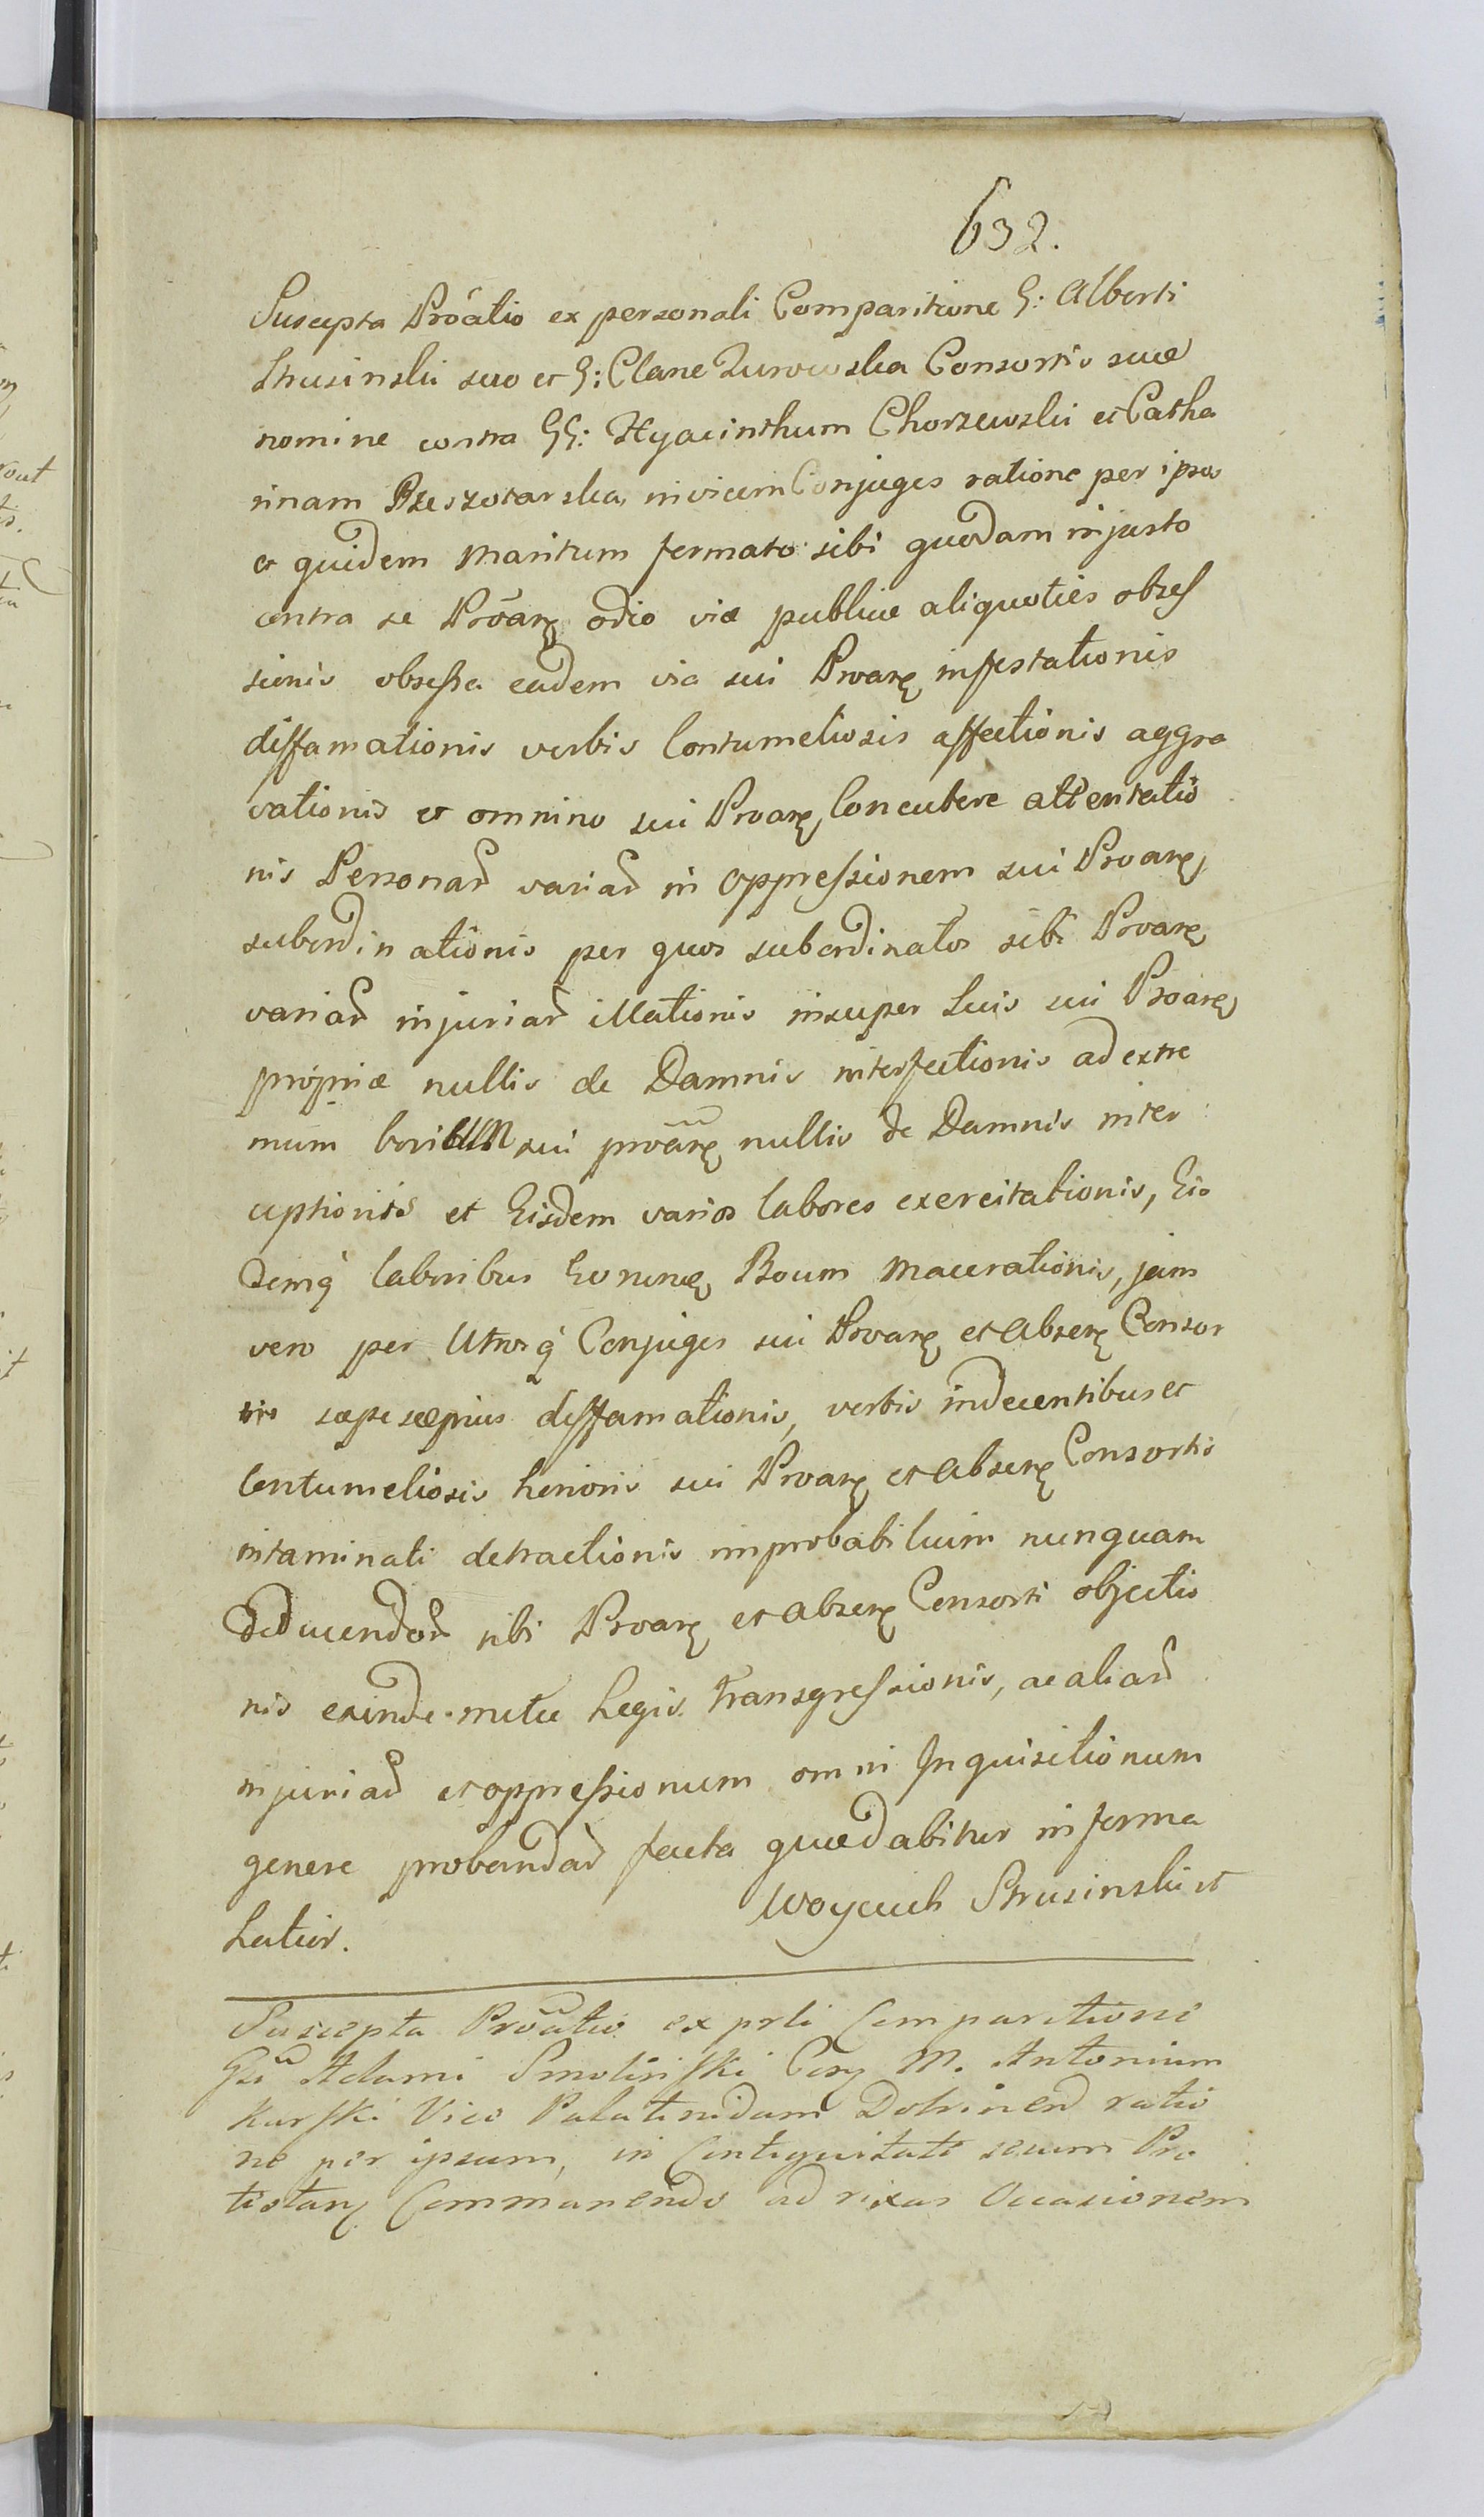 632.
Suscepta Prõatio ex personali Comparitione G: Alberti
Strusinski suo et G: Clare Zurowska Consortis suæ
nomine contra GG: Hyacinthum Chorzewski et Catha
rinam Rzeszotarska, invicem Conjuges ratione per ipsos
et quidem Maritum formato sibi quodam injusto
contra se Prõanꝫ odio viæ publicæ aliquoties obses
sionis obsessa eadem via sui Proanꝫ infestationis
diffamationis verbis Contumeliosis affectionis aggra
vationis et omnino sui Proanꝫ Concutere attentatio
nis Personaꝝ variaꝝ in oppressionem sui Proanꝫ
subordinationis per quos subordinatos sibi Proanꝫ
variaꝝ injuriaꝝ illationis insuper Suis sui Proanꝫ
propriæ nullis de Damnis interfectionis ad extre
mum boum sui prõanꝫ nullis de Damnis inter
ceptionis et Eisdem varios labores exercitationis, Eis
demq̃ laboribus Eorundꝫ Boum Macerationis, jam
vero per Utrosq̃ Conjuges sui Proanꝫ et absenꝫ Consor
tis sæpe sæpius diffamationis, verbis indecentibus et
Contumeliosis honoris sui Proanꝫ et absenꝫ Consortis
intaminati detractionis improbabilium nunquam
deducendoꝝ sibi Proanꝫ et absenꝫ Consorti objectio
nis exinde mulctæ Legis transgressionis, ac aliaꝝ
injuriaꝝ et oppressionum omni Inquisitionum
genere probandaꝝ facta quæ dabitur in forma
Latior. Woyciech Strusinski st
Suscepta Prõatio ex prli Comparitione
Gsi Adami Smolinski Cony M. Antonium
Kurski Vice Palatinidam Dobrinen ratio
ne per ipsum, in Contiguitate secum Pro
testanꝫ Commanendo ad rixas Occasionem